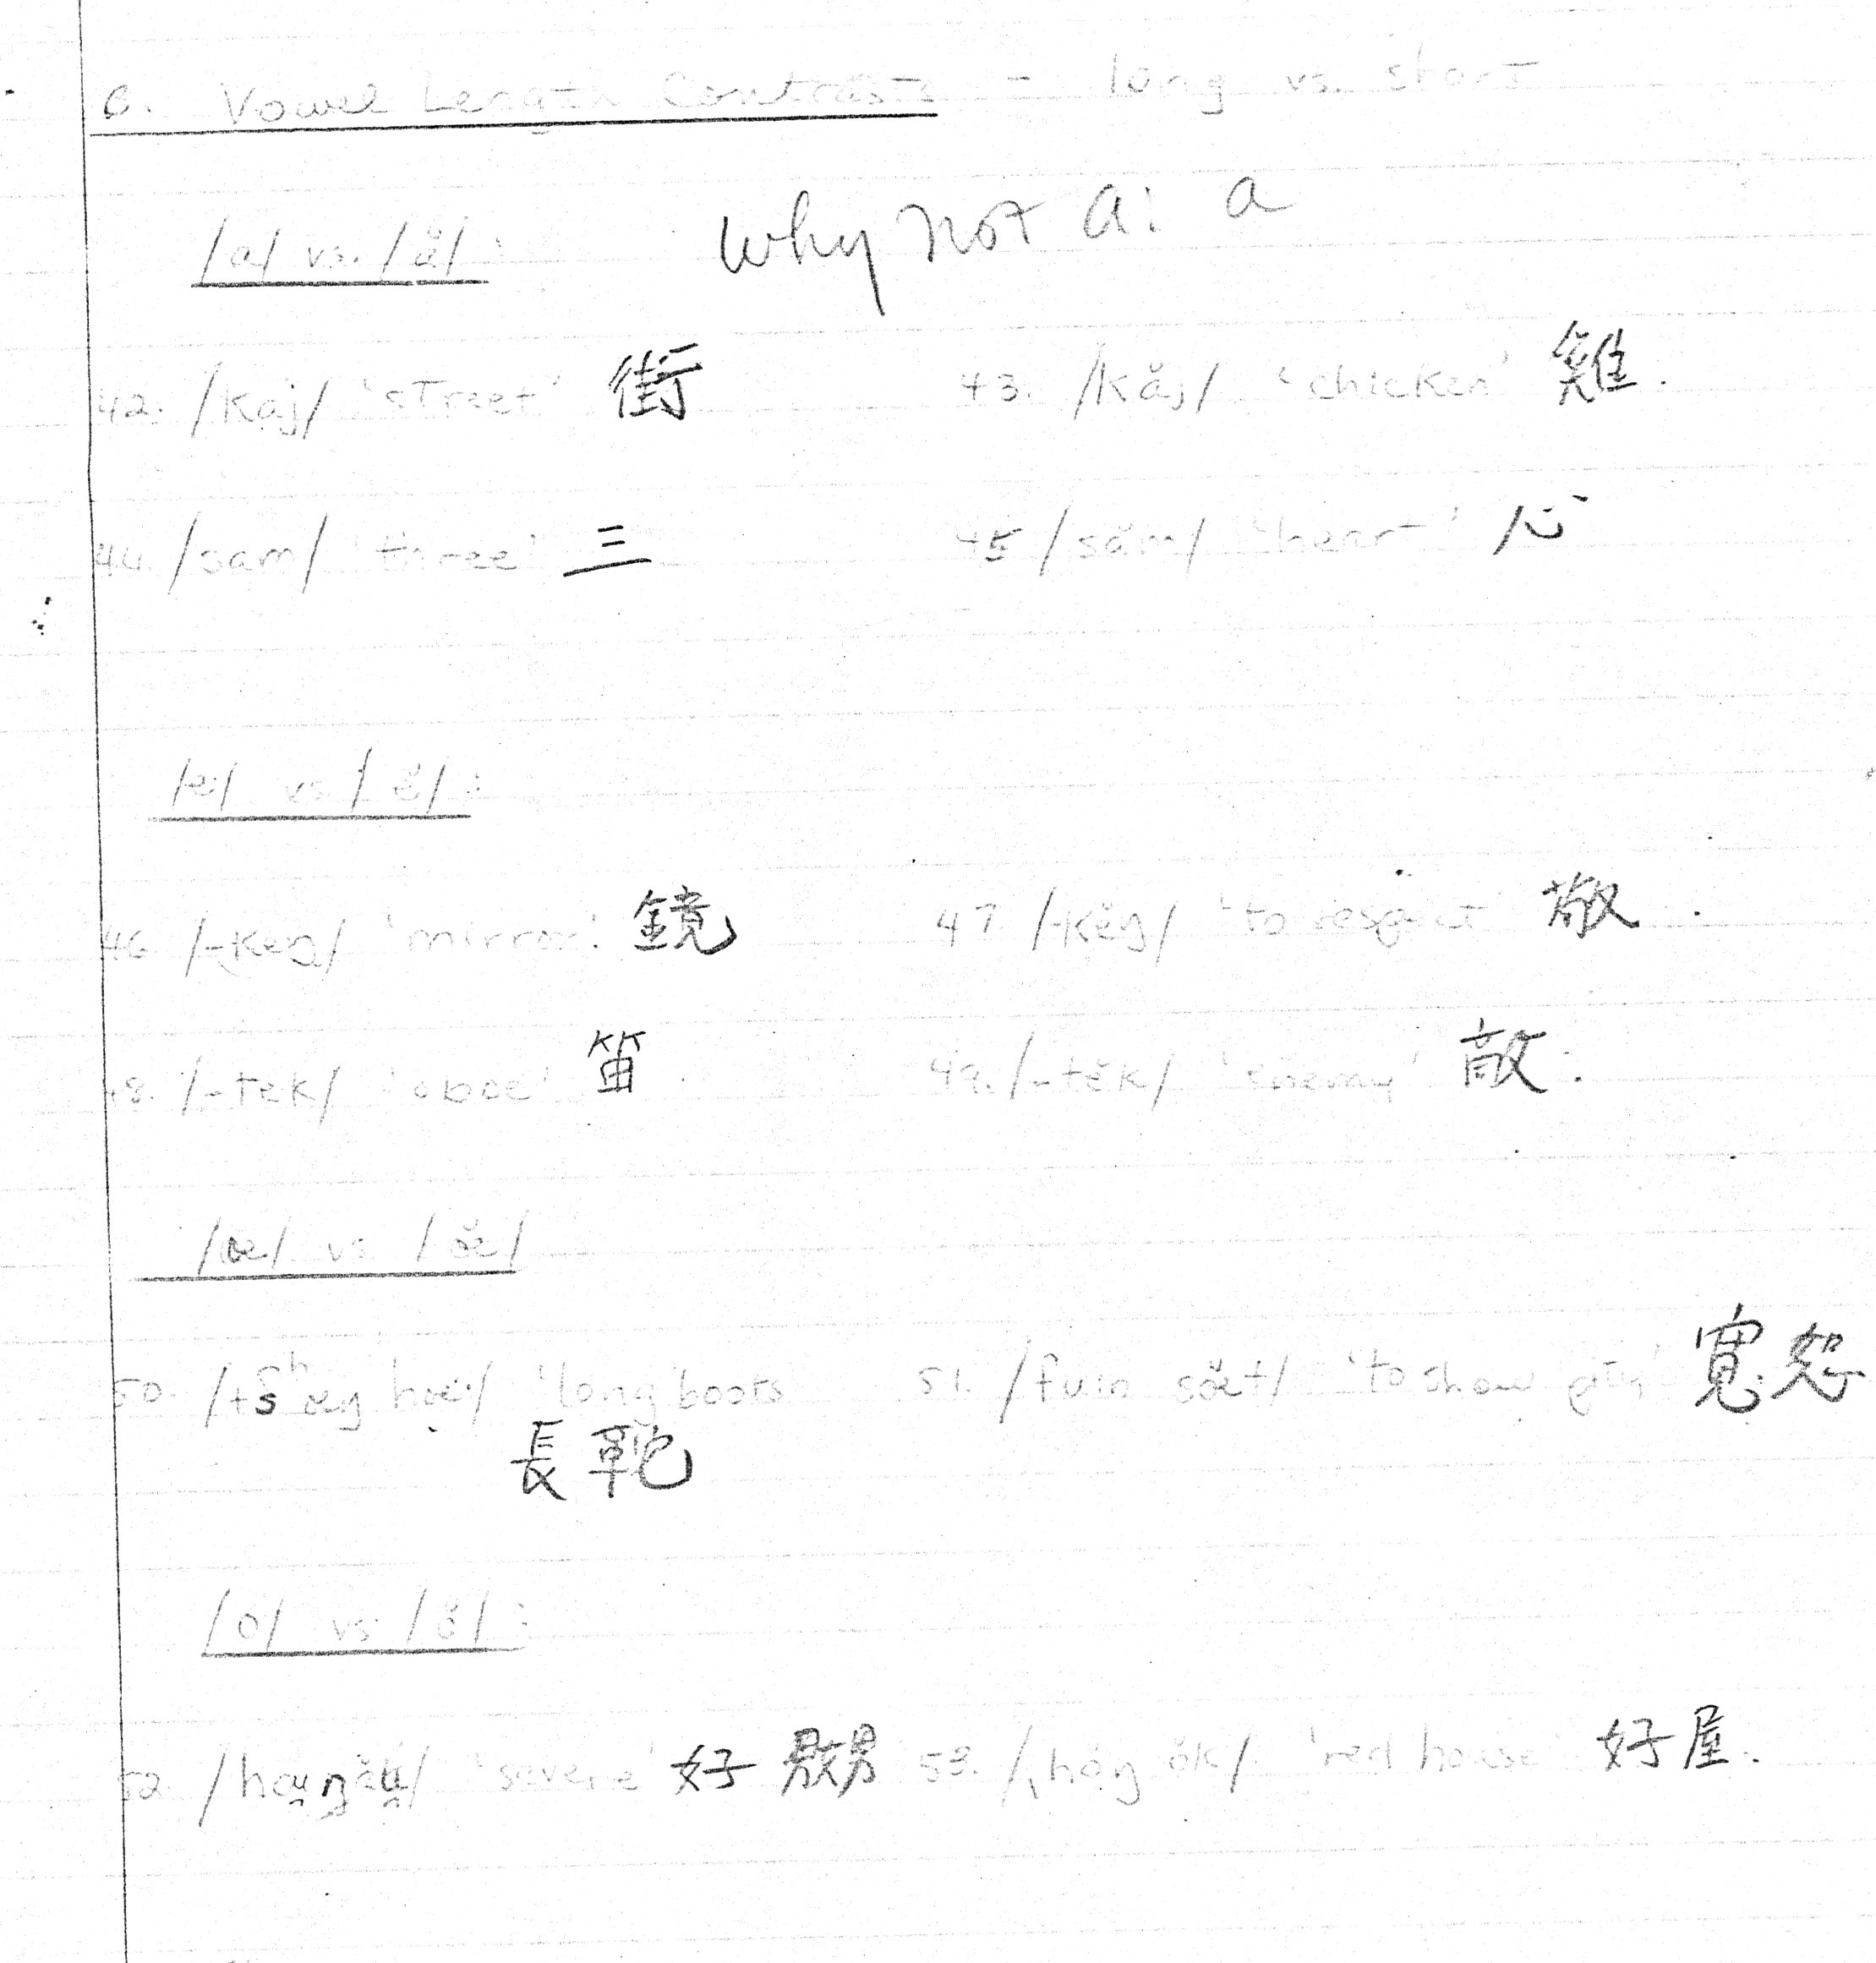 C. Vowel Length Contrasts - long vs. short
/a/ vs. /ă/ : why not a: a
42. /kaj/ 'street' 街 43. /kăj/ 'chicken' 雞.
44. /sam/ 'three' 三 45 /săm/ 'heart' 心
/e/ vs / ĕ/ :
46. /-keŋ/ 'mirror' 鏡 47 /-kĕŋ/ 'to respect' 敬 .
48. /-tek/ 'oboe' 笛 49. /-tĕk/ 'enemy' 敵 .
/œ/ vs / œ̆/
50. /tsʰœŋ hœ/ 'long boots 51. /fun sœ̆t/ 'to show 寬恕
長靴
/o/ vs /ŏ/ :
52. 'severe' 好 53. /ˌhŏŋ ŏk/ 'red house 好屋.